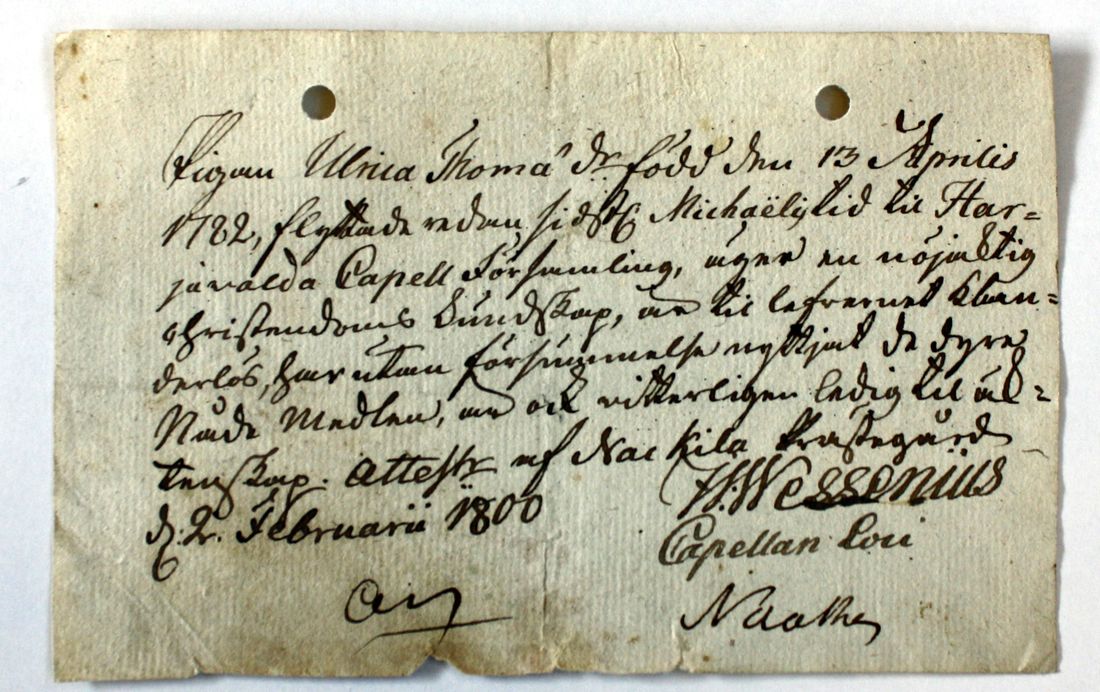 Pigan Ulrica Thomæ Dr född den 13 Aprilis
1782, flyttade redan sidstl. Michaëlijtid til Har-
javalda Capell Församling, äger en nöjaktig
Christendoms Kundskap, är til lefvernet klan-
derlös, har utan försummelse nyttjat de dyre
Nåde Medlen, är ock vitterligen ledig til äk-
tenskap. Attestr af Nackila Prästegård
d. 2. Februarii 1800
H. Wessenius
Capellan Loci